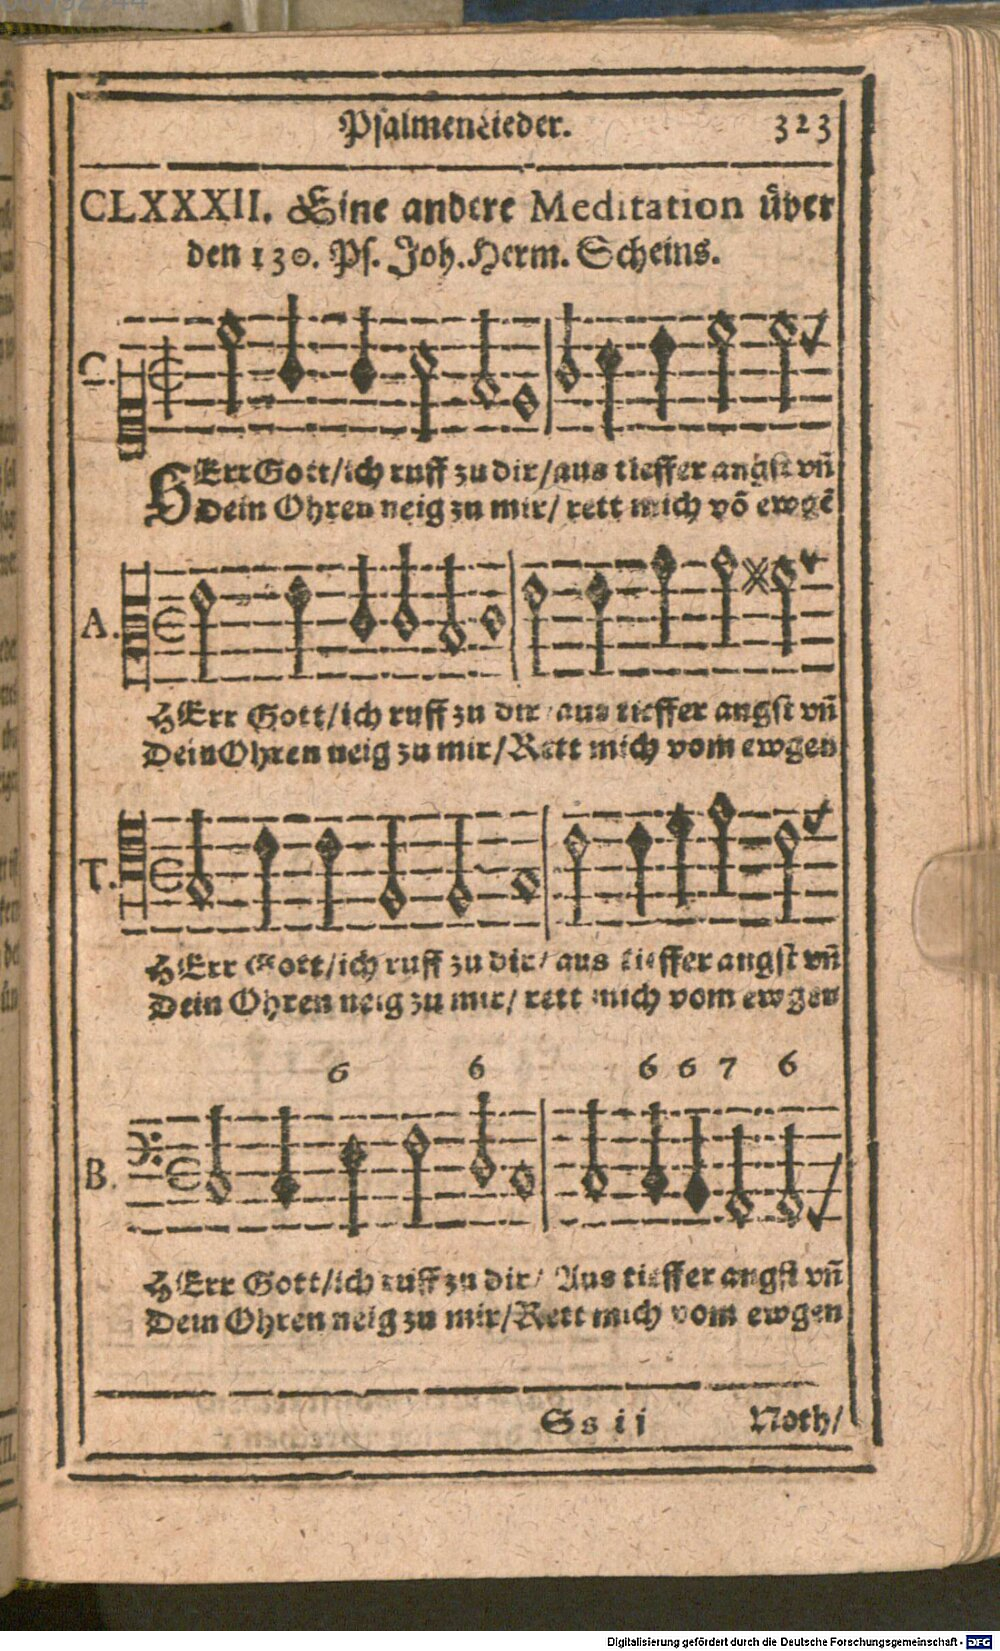 Psalmen Lieder. 323
CLXXXII. Eine andere Meditation über
den 130. Ps. Joh. Herm. Scheins.
C.
HErr Gott/ich ruff zu dir/aus tieffer angst vñ
Dein Ohren neig zu mir/ rett mich võ ewgẽ
A.
HErr Gott/ich ruff zu dir/aus tieffer angst vñ
Dein Ohren neig zu mir/Rett mich vom ewgen
T.
HErr Gott/ich ruff zu dir/ aus tieffer angst vñ
Dein Ohren neig zu mir/ rett mich vom ewgen
6 6 6 6 7 6
B.
HErr Gott/ich ruff zu dir/ Aus tieffer angst vñ
Dein Ohren neig zu mir/Rett mich vom ewgen
Ss ii Noth/
Digitalisierung gefördert durch die Deutsche Forschungsgemeinschaft - DFG